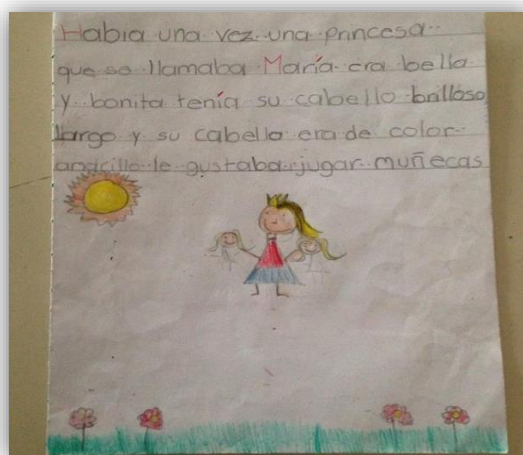 Había una vez una princesa
que se llamaba María era bella
y bonita tenía su cabello brilloso
largo y su cabello era de color
amarillo le gustaba jugar muñecas